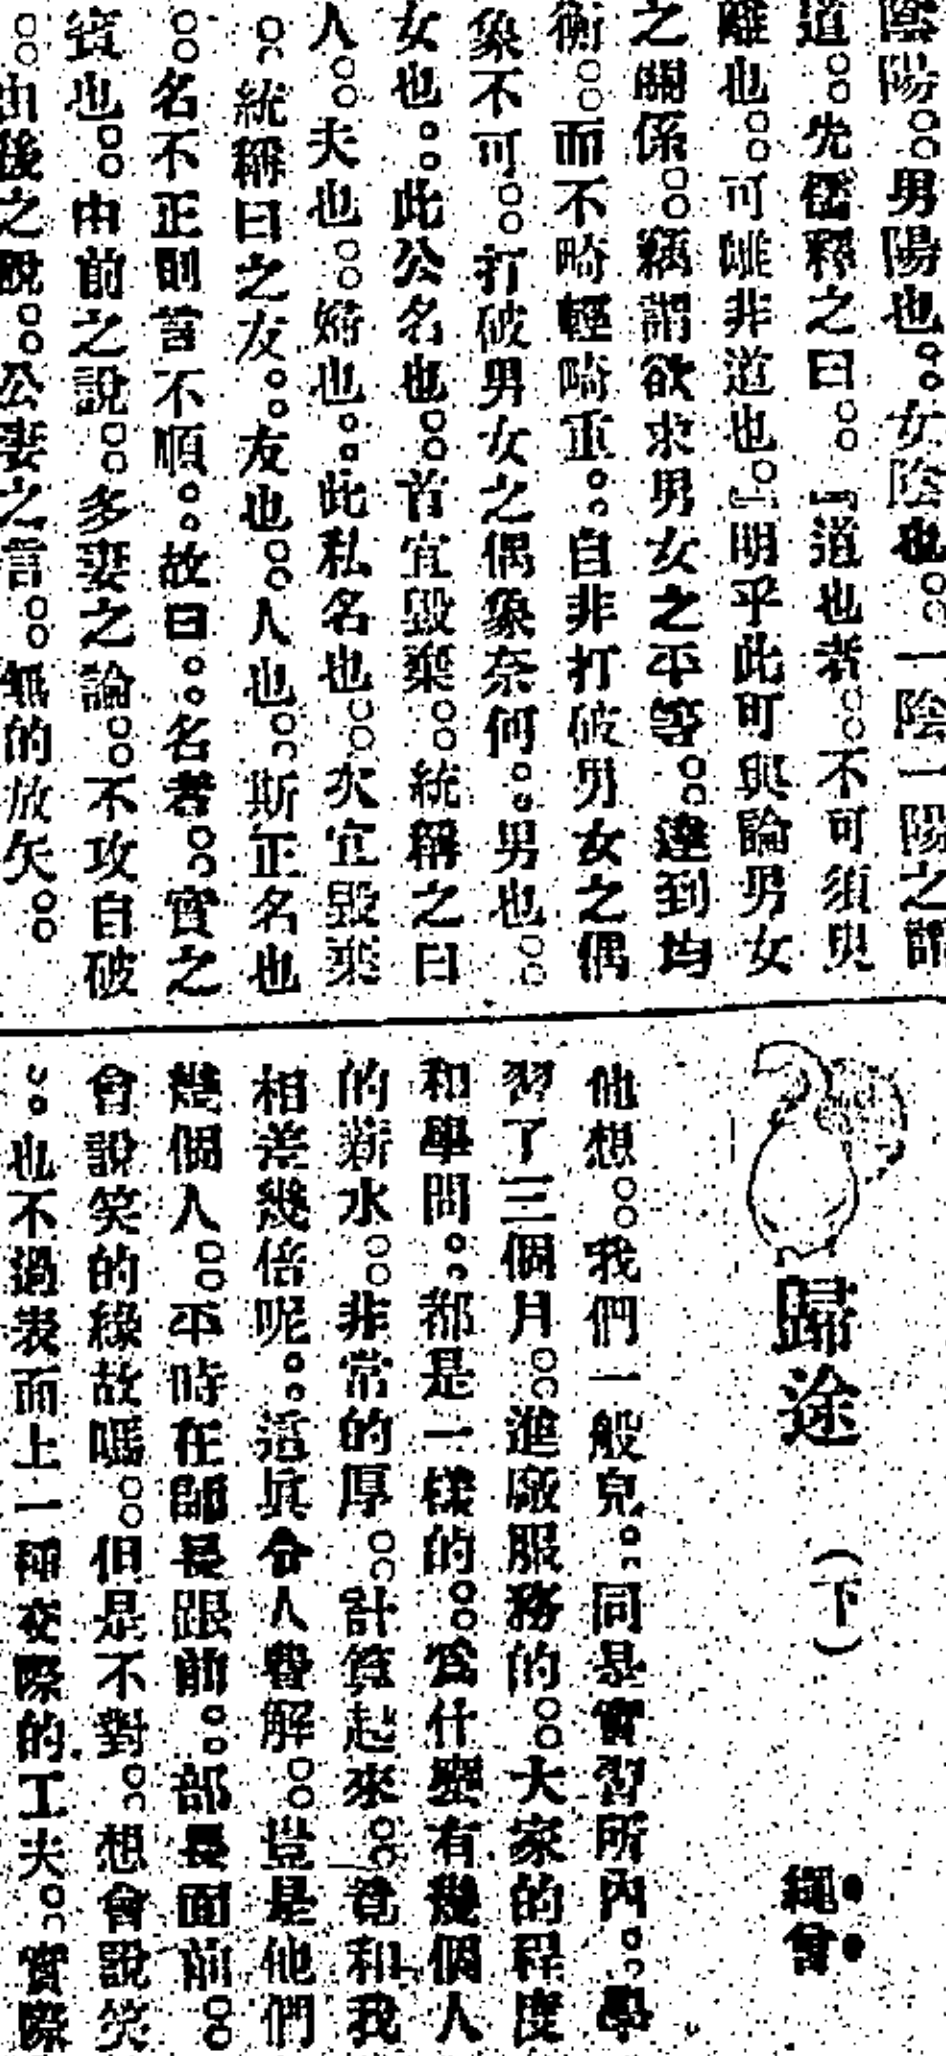 陰陽。。男陽也。。女陰也。。一陰一陽之謂
道。。先儒釋之曰。。『道也者。。不可須臾
離也。。可離非道也。』明乎此可與論男女
之關係。。竊謂欲求男女之平等。。達到均
衡。。而不畸輕畸重。。自非打破男女之偶
象不可。。打破男女之偶象奈何。。男也。。
女也。。此公名也。。首宜毀棄。。統稱之曰
人。。夫也。。婦也。。此私名也。。次宜毀棄
。。統稱曰之友。。友也。。人也。。斯正名也
。。名不正則言不順。。故曰。。名者。。實之
賓也。。由前之說。。多妻之論。。不攻自破
。。由後之說。。公妻之言。。無的放矢。。
歸途 (下) 繩曾
他想。。我們一般兒。。同是實習所內。。學
習了三個月。。進廠服務的。。大家的程度
和學問。。都是一樣的。。爲什麼有幾個人
的薪水。。非常的厚。。計算起來。。竟和我
相差幾倍呢。。這眞令人費解。。豈是他們
幾個人。。平時在師長跟前。。部長面前。。
會說笑的緣故嗎。。但是不對。。想會說笑
。。也不過表面上一種交際的工夫。。實際